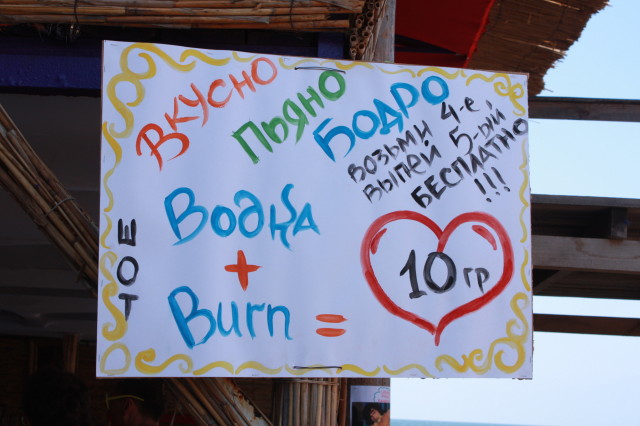 Вкусно Пьяно Бодро
возьми 4-е
выпей 5-ый
бесплатно
!!!
Водка
+
Burn = 10 гр
тое